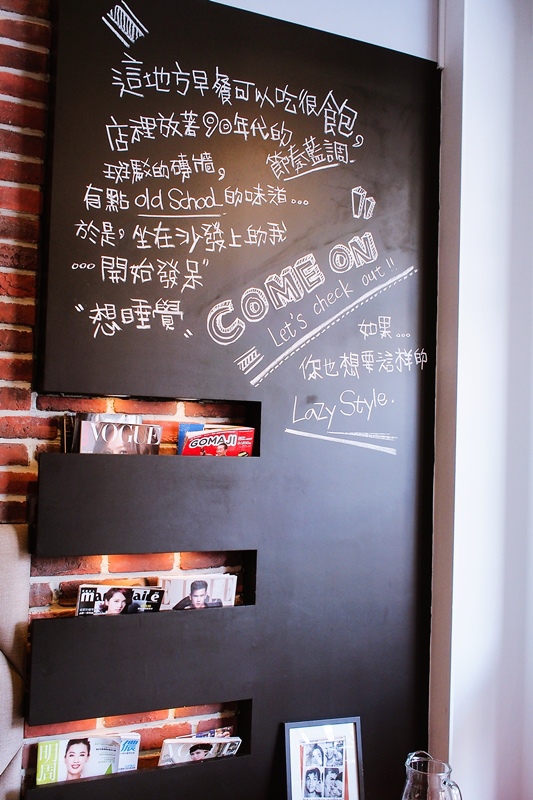 這地方早餐可以吃很飽,
店裡放著90年代的
節奏藍調.
斑駁的磚牆,
有點 old School 的味道...
於是,坐在沙發上的我
...開始發呆”
“想睡覺”
COME ON
Let's check out!!
如果...
你也想要這樣的
Lazy Style.
VOGUE
GOMAJI
明周
儂